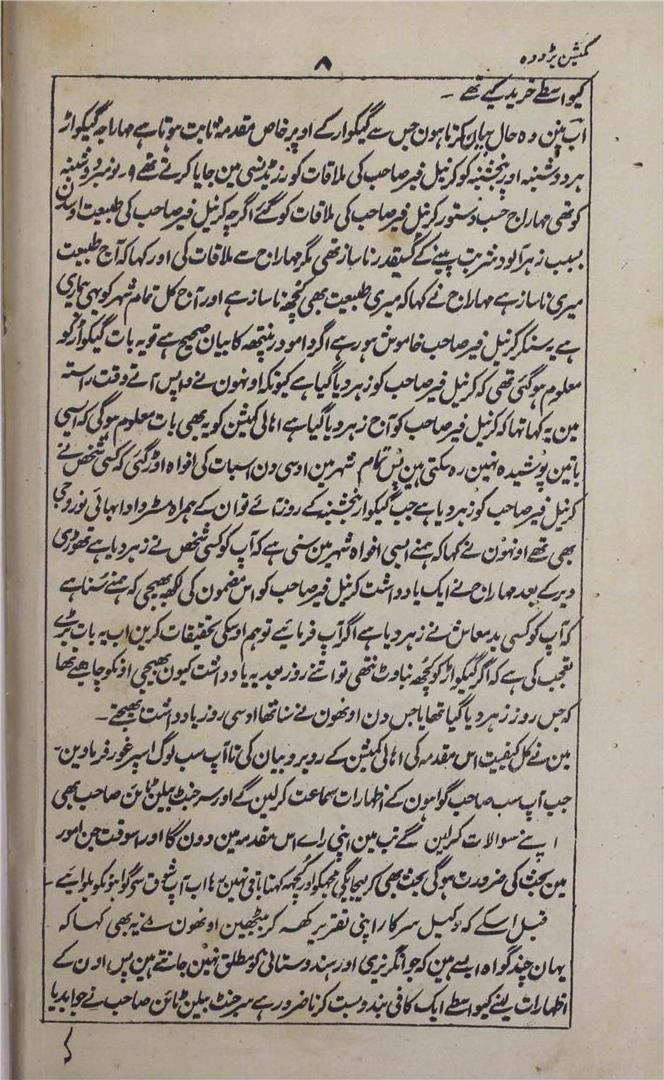 کمیشن بڑودہ
۸
کیواسطے خرید کیے تھے ۔
اب مین وہ حال بیان کرتا ہون جس سے گیکوار کے اوپر خاص مقدمہ ثابت ہوتا ہے مہاراجہ گیکواڑ
ہر دوشنبہ اور پنجشنبہ کو کرنیل فیر صاحب کی ملاقات کو رزیڈنسی مین جایا کرتے تھے ۹ ۔ نومبر دوشنبہ
کو تھی مہاراج حسب دستور کرنیل فیر صاحب کی ملاقات کو گئے اگرچہ کرنیل فیر صاحب کی طبیعت اوسدن
بسبب زہرآلود شربت پینے کے کسیقدر ناساز تھی مگر مہاراج سے ملاقات کی اور کہا کہ آج طبیعت
میری ناساز ہے مہاراج نے کہا کہ میری طبیعت بھی کچھ ناساز ہے اور آج کل تمام شہر کو یہی بیماری
ہے یہ سنکر کرنیل فیر صاحب خاموش ہو رہے اگر دامودر پنتھہ کا بیان صحیح ہے تو یہ بات گیکواڑ کو
معلوم ہو گئی تھی کہ کرنیل فیر صاحب کو زہر دیا گیا ہے کیونکہ اونہون نے واپس آتے وقت راستہ
مین یہ کہا تہا کہ کرنیل فیر صاحب کو آج زہر دیا گیا ہے اہالی کمیشن کو یہ بھی بات معلوم ہو گی کہ ایسی
باتین پوشیدہ نہین رہ سکتی ہین پس تمام شہر مین اوسی دن اسبات کی افواہ اوڑ گئی کہ کسی شخص نے
کرنیل فیر صاحب کو زہر دیا ہے جب گیکواڑ پنجشنبہ کے روز آئے تو ان کے ہمراہ مسٹر دادابھائی نوروجی
بھی تھے اونہون نے کہا کہ ہمنے ایسی افواہ شہر مین سنی ہے کہ آپ کو کسی شخص نے زہر دیا ہے تھوڑی
دیر کے بعد مہاراج نے ایک یادداشت کرنیل فیر صاحب کو اس مضمون کی لکھہ بھیجی کہ ہمنے سنا ہے
کہ آپ کو کسی بدمعاش نے زہر دیا ہے اگر آپ فرمائیے تو ہم اوسکی تحقیقات کرین اب یہ بات بڑے
تعجب کی ہے کہ اگر گیکواڑ کو کچھہ بناوٹ نتھی تو اتنے روز بعد یہ یادداشت کیون بھیجی اونکو چاہیے تھا
کہ جس روز زہر دیا گیا تھا یا جس دن اونھون نے سنا تھا اوسی روز یادداشت بھیجتے ۔
مین نے کل کیفیت اس مقدمہ کی اہالی کمیشن کے روبرو بیان کی تا آپ سب لوگ اسپر غور فرماوین ۔
جب آپ سب صاحب گواہون کے اظہارات سماعت کر لین گے اور سرجنٹ بیلن ٹائن صاحب بھی
اپنے سوالات کر لین گے تب مین اپنی راے اس مقدمہ مین دون گا اور اسوقت جن امور
مین بحث کی ضرورت ہو گی بحث بھی کر لیجائیگی مجھکو اور کچھہ کہنا باقی نہین رہا اب آپ شوق سے گواہونکو بلوایئے ۔
قبل اسکے کہ وکیل سرکار اپنی تقریر کہہ کر بیٹھین اونھون نے یہ بھی کہا کہ
یہان چند گواہ ایسے ہین کہ جو انگریزی اور ہندوستانی کو مطلق نہین جانتے ہین پس اون کے
اظہارات لینے کیواسطے ایک کافی بندوبست کرنا ضرور ہے سرجنٹ بیلن ٹائن صاحب نے جوابدیا